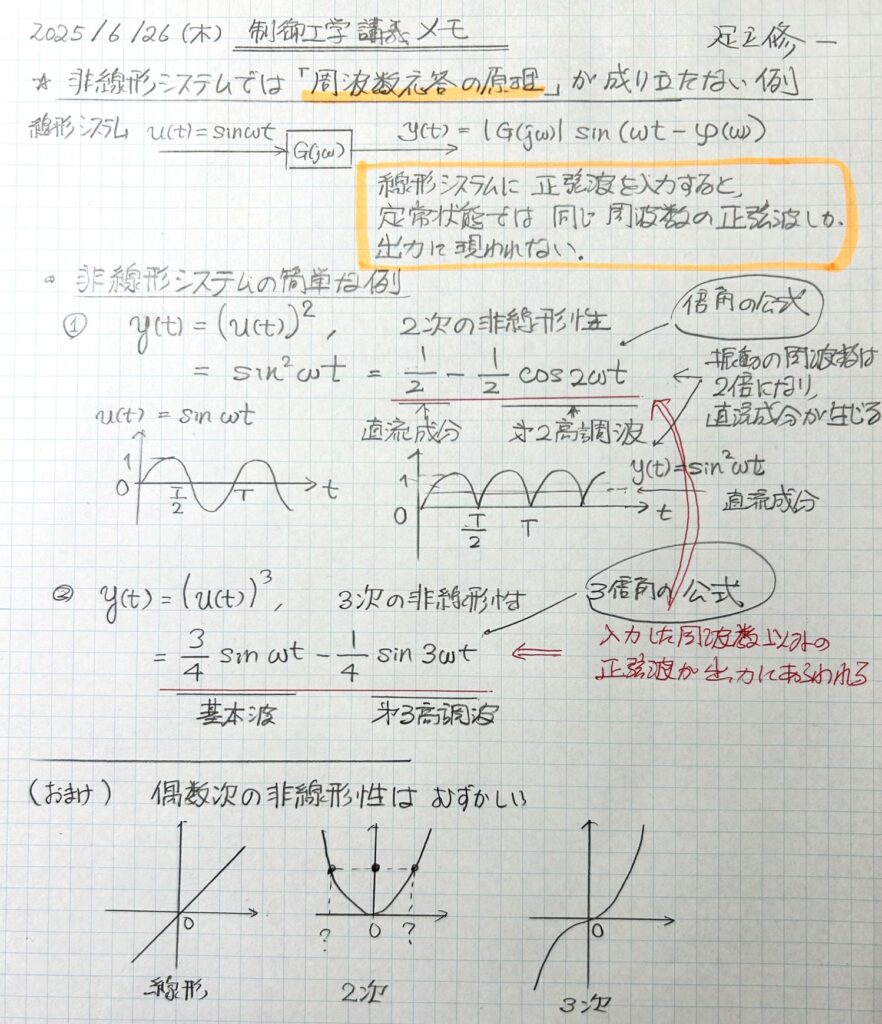 2025/6/26(木) 制御工学講義メモ 足立修一
☆ 非線形システムでは「周波数応答の原理」が成り立たない例
線形システム u(t)=sinωt G(jω) y(t)=|G(jω)| sin(ωt-φ(ω))
線形システムに正弦波を入力すると,
定常状態では同じ周波数の正弦波しか
出力に現われない.
◦ 非線形システムの簡単な例
① y(t)=(u(t))², 2次の非線形性
倍角の公式
= sin²ωt = 1/2 - 1/2 cos2ωt
振動の周波数は
2倍になり,
直流成分が生じる
直流成分 第2高調波
u(t)=sinωt
1 0 T/2 T t
y(t)=sin²ωt
1 0 T/2 T t
直流成分
② y(t)=(u(t))³, 3次の非線形性
3倍角の公式
= 3/4 sinωt - 1/4 sin3ωt
入力した周波数以外の
正弦波が出力にあらわれる
基本波 第3高調波
(おまけ) 偶数次の非線形性はむずかしい
0 ? 0 ? 0
線形 2次 3次